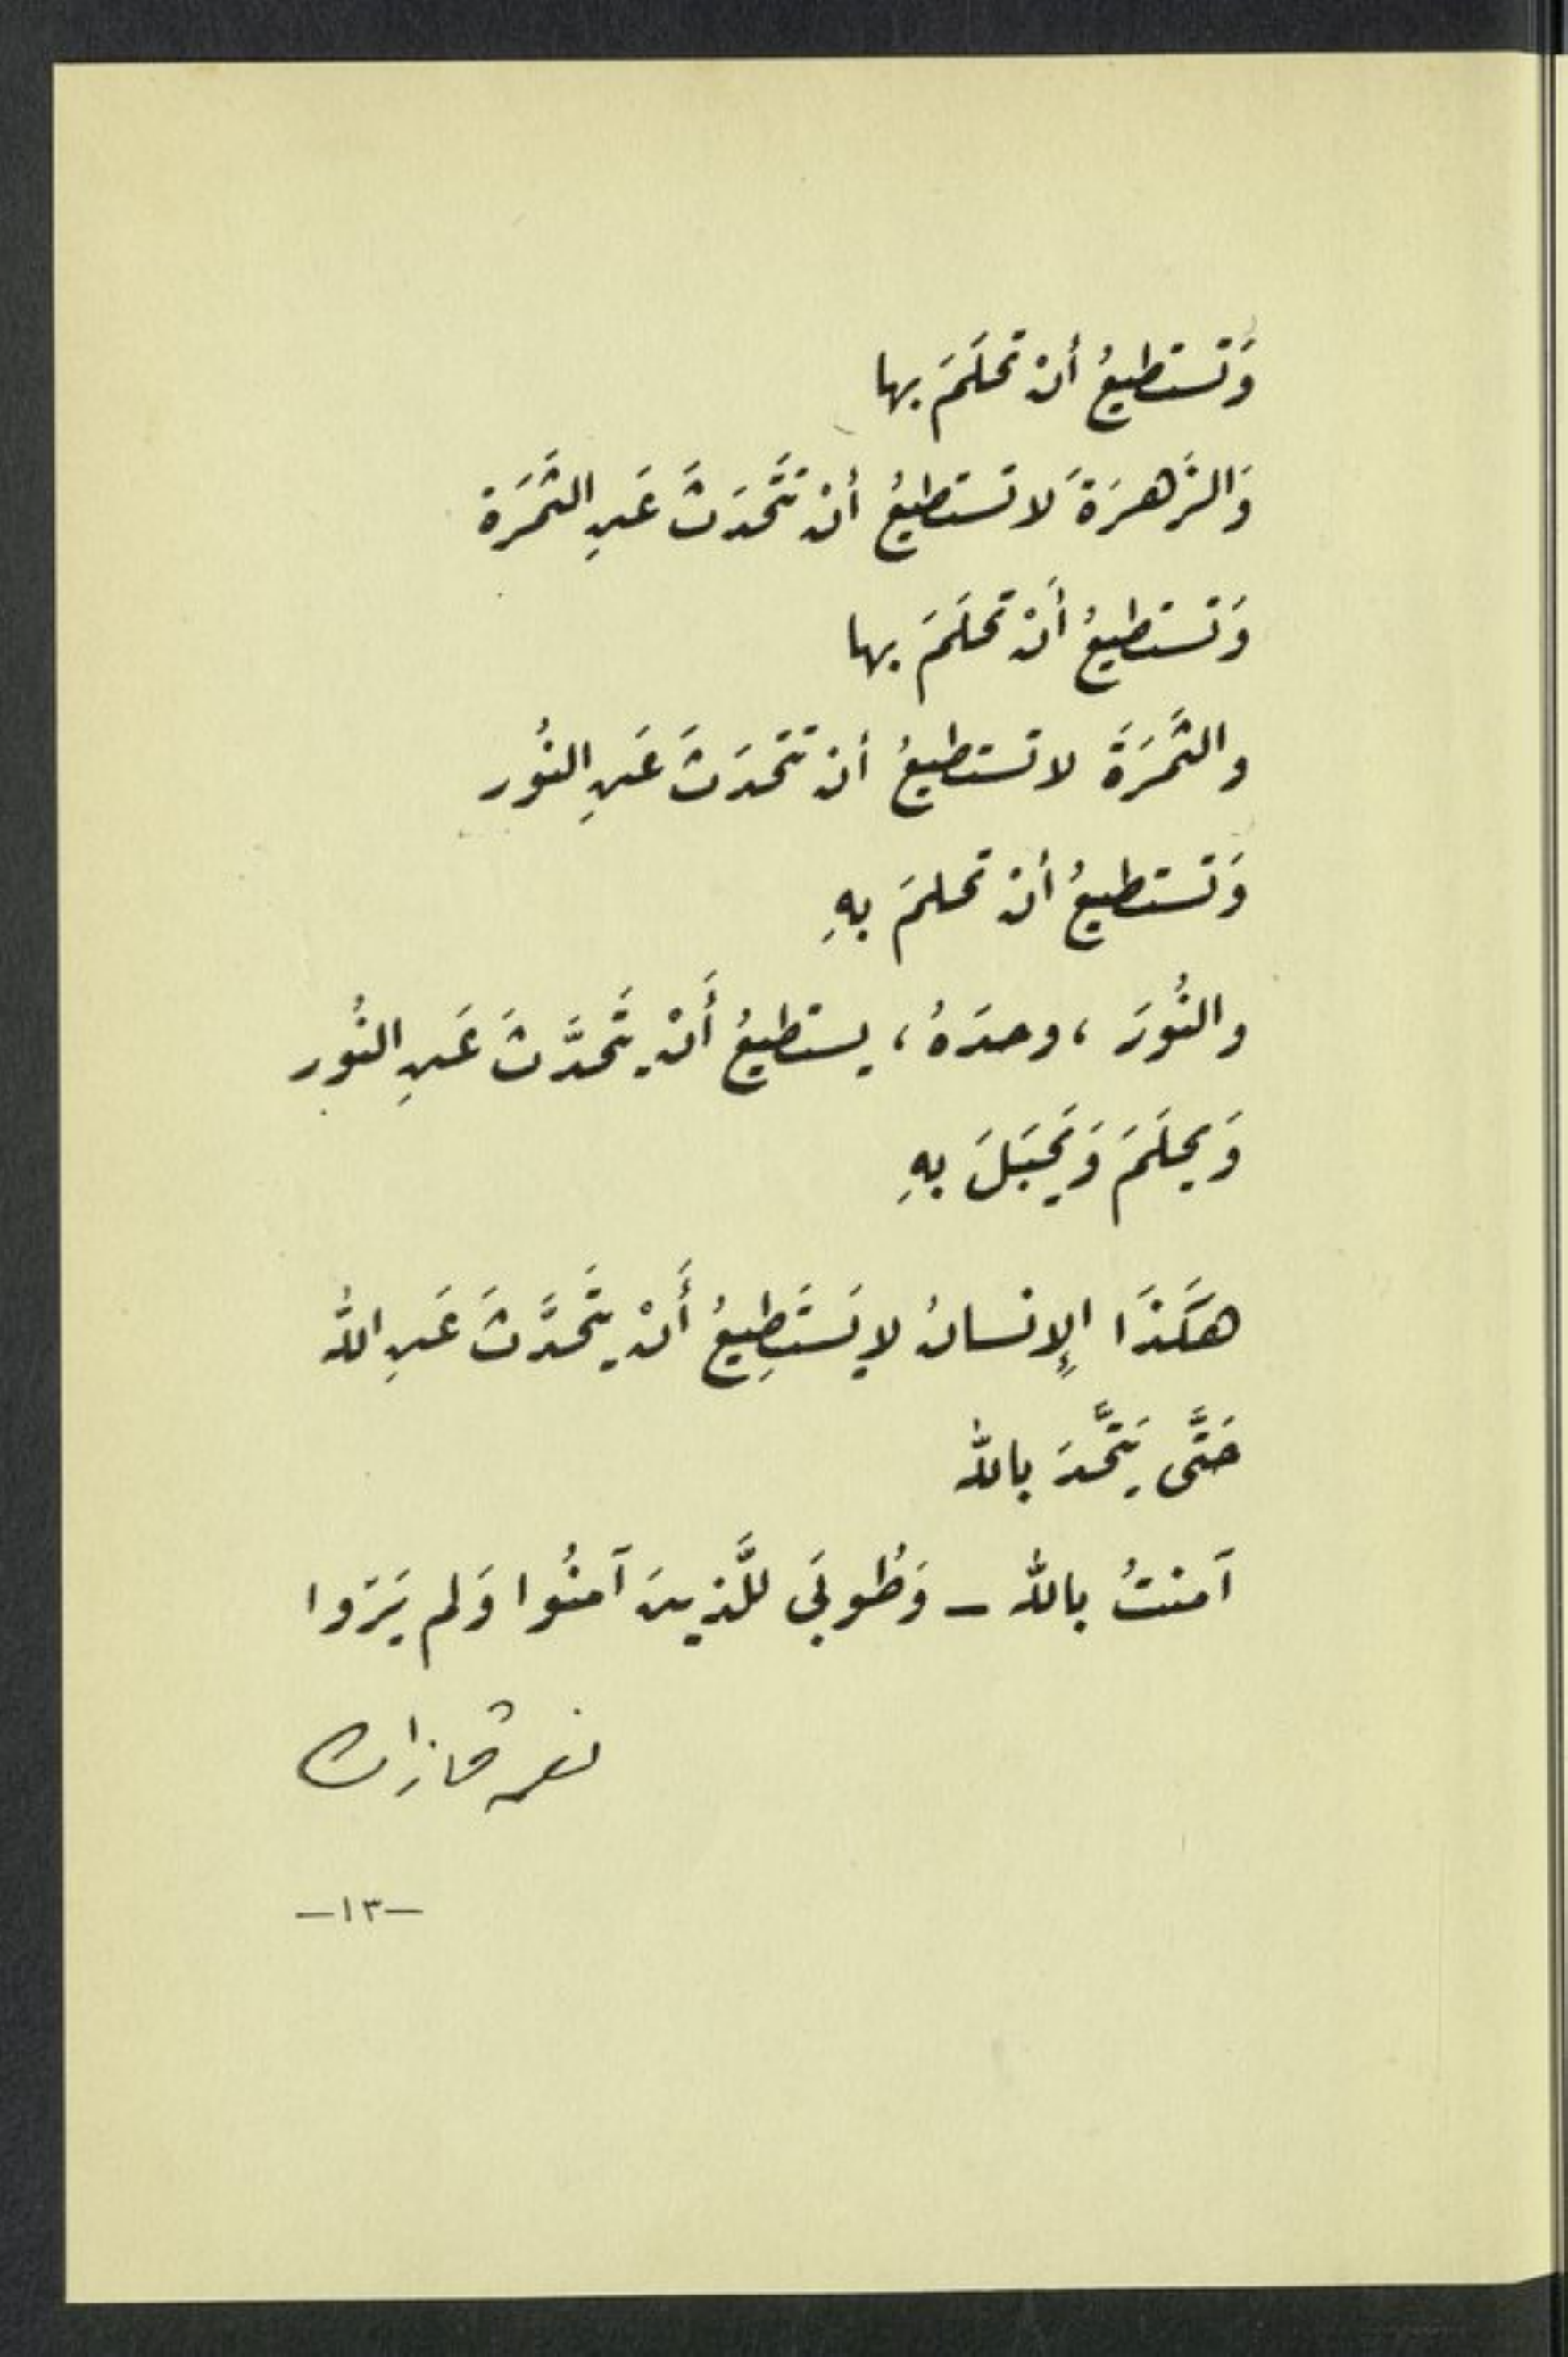 وَتستطيعُ أنْ تحلَمَ بها
وَالزَهرَةَ لا تستطيعُ أنْ تتَّحدَثَ عَنِ الثَّمَرَة
وَتستطيعُ أَنْ تحلَمَ بها
والثَّمرَةَ لا تستطيعُ أن تتحدَثَ عَنِ النُور
وَتستطيعُ أنْ تحلمَ بهِ
والنُّورَ ، وحدَهُ ، يستطيعُ أَنْ يتَحدَّثَ عَنِ النُور
وَيحلَمَ وَيَحبَلَ بهِ
هكَذَا الإنسانُ لا يَستَطِيعُ أَنْ يتَحدَّثَ عَنِ الله
حَتَّى يَتَّحدَ بالله
آمنتُ بالله – وَطُوبَى للَّذينَ آمنُوا وَلم يَرَوا
نعمة قازان
–١٣–